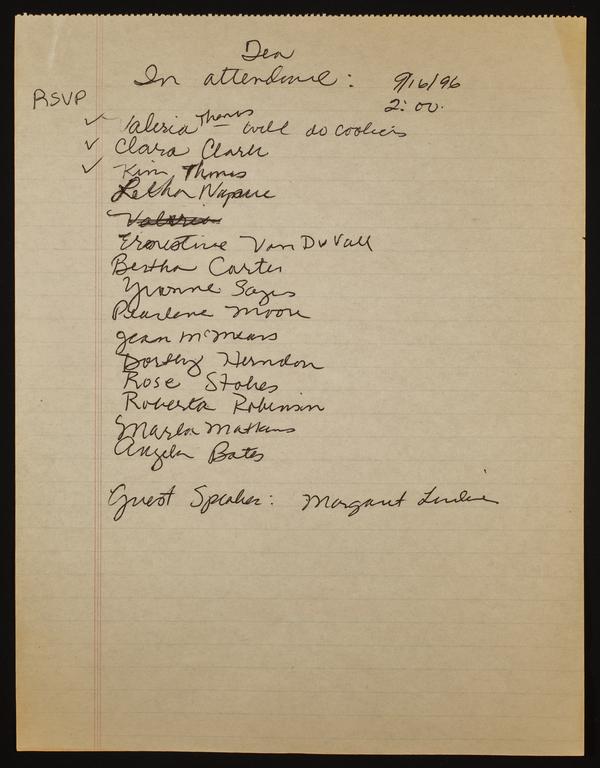 Tea
In attendance: 9/16/96
RSVP 2:00.
✓ Valeria Thomas - will do cookies
✓ Clara Clark
✓ Kim Thomas
Letha Napue
Valeria
Ernestine Van DuVall
Bertha Carter
Yvonne
Pearlene Moore
Jean McMeans
Dorothy Herndon
Rose Stokes
Roberta Robinson
Marla Mathews
Angela Bates
Guest Speaker: Margaret